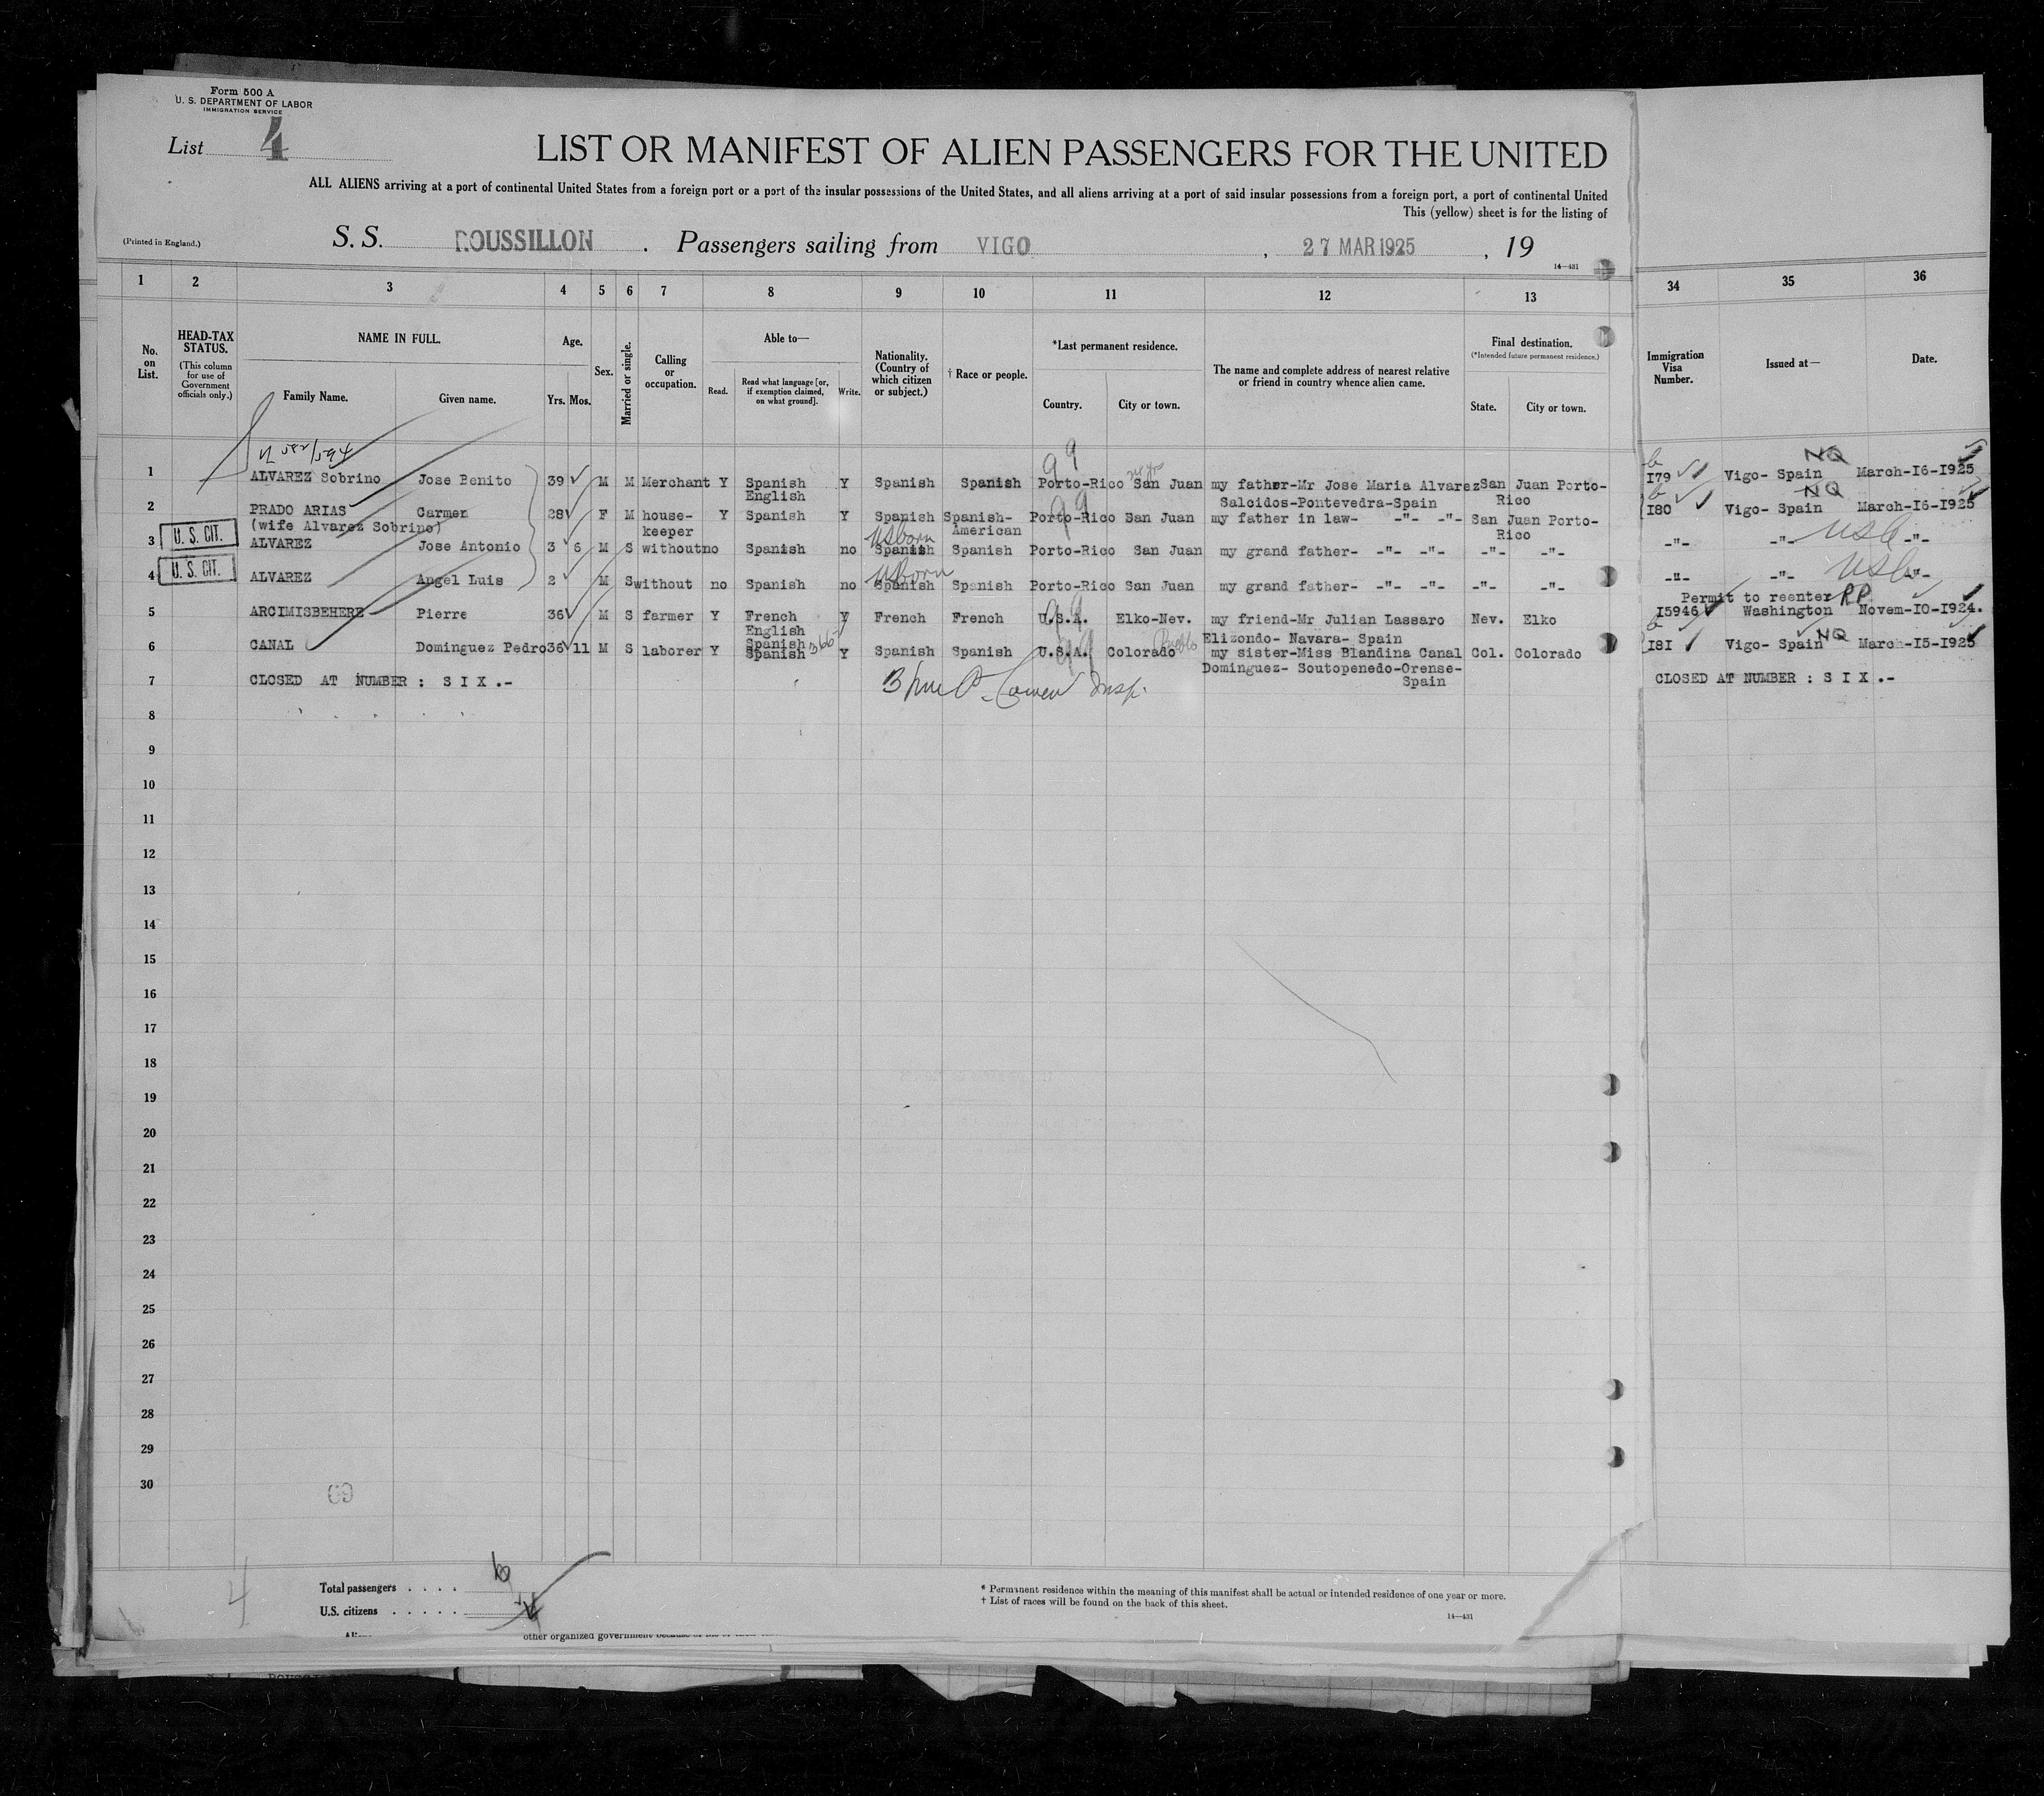 Form 500 A
U. S. DEPARTMENT OF LABOR
IMMIGRATION SERVICE
List 4
LIST OR MANIFEST OF ALIEN PASSENGERS FOR THE UNITED
ALL ALIENS arriving at a port of continental United States from a foreign port or a port of the insular possessions of the United States, and all aliens arriving at a port of said insular possessions from a foreign port, a port of continental United
This (yellow) sheet is for the listing of
(Printed in England.) S. S. ROUSSILLON . Passengers sailing from VIGO , 27 MAR 1925 , 19
14—431
1 2 3 4 5 6 7 8 9 10 11 12 13 34 35 36
No. on List.
HEAD-TAX STATUS.
(This column for use of Government officials only.)
NAME IN FULL.
Family Name. Given name.
Age.
Yrs. Mos.
Sex.
Married or single.
Calling or occupation.
Able to—
Read. Read what language [or, if exemption claimed, on what ground]. Write.
Nationality. (Country of which citizen or subject.)
† Race or people.
*Last permanent residence.
Country. City or town.
The name and complete address of nearest relative or friend in country whence alien came.
Final destination.
(*Intended future permanent residence.)
State. City or town.
Immigration Visa Number.
Issued at—
Date.
99 NQ
1 ALVAREZ Sobrino Jose Benito 39 M M Merchant Y Spanish Y Spanish Spanish Porto-Rico San Juan my father-Mr Jose Maria Alvarez San Juan Porto- I79 Vigo- Spain March-I6-I925
English Salcidos-Pontevedra-Spain Rico NQ
2 PRADO ARIAS Carmen 28 F M house- Y Spanish Y Spanish Spanish- Porto-Rico San Juan my father in law- -"- -"- San Juan Porto- I80 Vigo- Spain March-I6-I925
(wife Alvarez Sobrino) keeper American Rico
U. S. CIT. US born USC
3 ALVAREZ Jose Antonio 3 6 M S without no Spanish no Spanish Spanish Porto-Rico San Juan my grand father- -"- -"- -"- -"- -"- -"- -"-
U. S. CIT. US Born USC
4 ALVAREZ Angel Luis 2 M S without no Spanish no Spanish Spanish Porto-Rico San Juan my grand father- -"- -"- -"- -"- -"- -"- -"-
Permit to reenter RP
5 ARCIMISBEHERE Pierre 36 M S farmer Y French Y French French U.S.A. Elko-Nev. my friend-Mr Julian Lassaro Nev. Elko I5946 Washington Novem-I0-I924.
English Elizondo- Navara- Spain
Spanish Pueblo NQ
6 CANAL Dominguez Pedro 36 11 M S laborer Y Spanish Y Spanish Spanish U.S.A. Colorado my sister-Miss Blandina Canal Col. Colorado I8I Vigo- Spain March-I5-I925
Dominguez- Soutopenedo-Orense-
Spain
7 CLOSED AT NUMBER : S I X .- CLOSED AT NUMBER : S I X .-
8
9
10
11
12
13
14
15
16
17
18
19
20
21
22
23
24
25
26
27
28
29
30
Total passengers . . . . 6
U.S. citizens . . . . .
4
* Permanent residence within the meaning of this manifest shall be actual or intended residence of one year or more.
† List of races will be found on the back of this sheet.
14—431